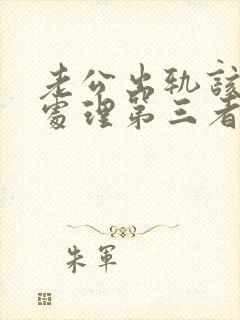 老公出轨該
處理第三者
朱軍